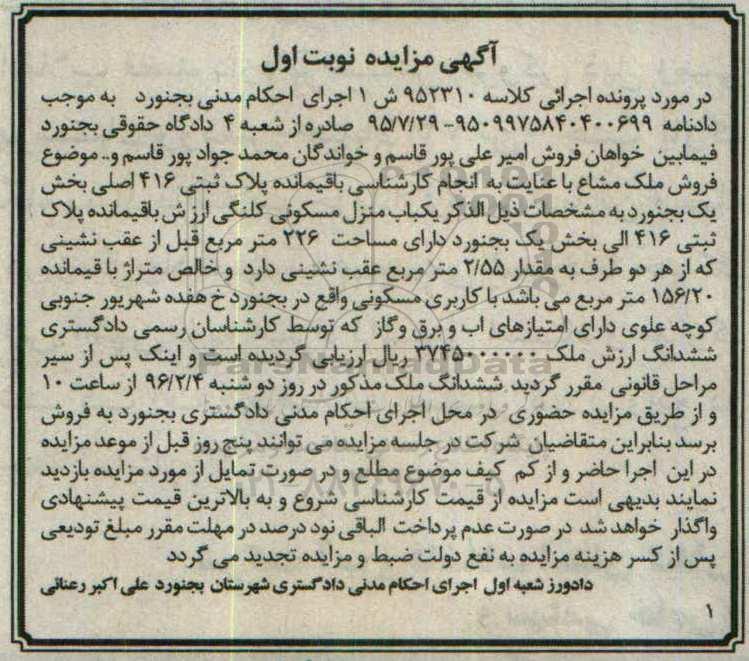 آگهی مزایده نوبت اول
در مورد پرونده اجرائی کلاسه ۹۵۲۳۱۰ ش ۱ اجرای احکام مدنی بجنورد به موجب
دادنامه ۹۵۰۹۹۷۵۸۴۰۴۰۰۶۹۹- ۹۵/۷/۲۹ صادره از شعبه ۴ دادگاه حقوقی بجنورد
فیمابین خواهان فروش امیر علی پور قاسم و خواندگان محمد جواد پور قاسم و.. موضوع
فروش ملک مشاع با عنایت به انجام کارشناسی باقیمانده پلاک ثبتی ۴۱۶ اصلی بخش
یک بجنورد به مشخصات ذیل الذکر یکباب منزل مسکونی کلنگی ارز ش باقیمانده پلاک
ثبتی ۴۱۶ الی بخش یک بجنورد دارای مساحت ۲۲۶ متر مربع قبل از عقب نشینی
که از هر دو طرف به مقدار ۲/۵۵ متر مربع عقب نشینی دارد و خالص متراژ با قیمانده
۱۵۶/۲۰ متر مربع می باشد با کاربری مسکونی واقع در بجنورد خ هفده شهریور جنوبی
کوچه علوی دارای امتیازهای اب و برق وگاز که توسط کارشناسان رسمی دادگستری
ششدانگ ارزش ملک ۳۷۴۵۰۰۰۰۰۰ ریال ارزیابی گردیده است و اینک پس از سیر
مراحل قانونی مقرر گردید ششدانگ ملک مذکور در روز دو شنبه ۹۶/۲/۴ از ساعت ۱۰
و از طریق مزایده حضوری در محل اجرای احکام مدنی دادگشتری بجنورد به فروش
برسد بنابراین متقاضیان شرکت در جلسه مزایده می توانند پنج روز قبل از موعد مزایده
در این اجرا حاضر و از کم کیف موضوع مطلع و در صورت تمایل از مورد مزایده بازدید
نمایند بدیهی است مزایده از قیمت کارشناسی شروع و به بالاترین قیمت پیشنهادی
واگذار خواهد شد در صورت عدم پرداخت الباقی نود درصد در مهلت مقرر مبلغ تودیعی
پس از کسر هزینه مزایده به نفع دولت ضبط و مزایده تجدید می گردد
دادورز شعبه اول اجرای احکام مدنی دادگستری شهرستان بجنورد علی اکبر رعنائی
۱
ParsNamadData